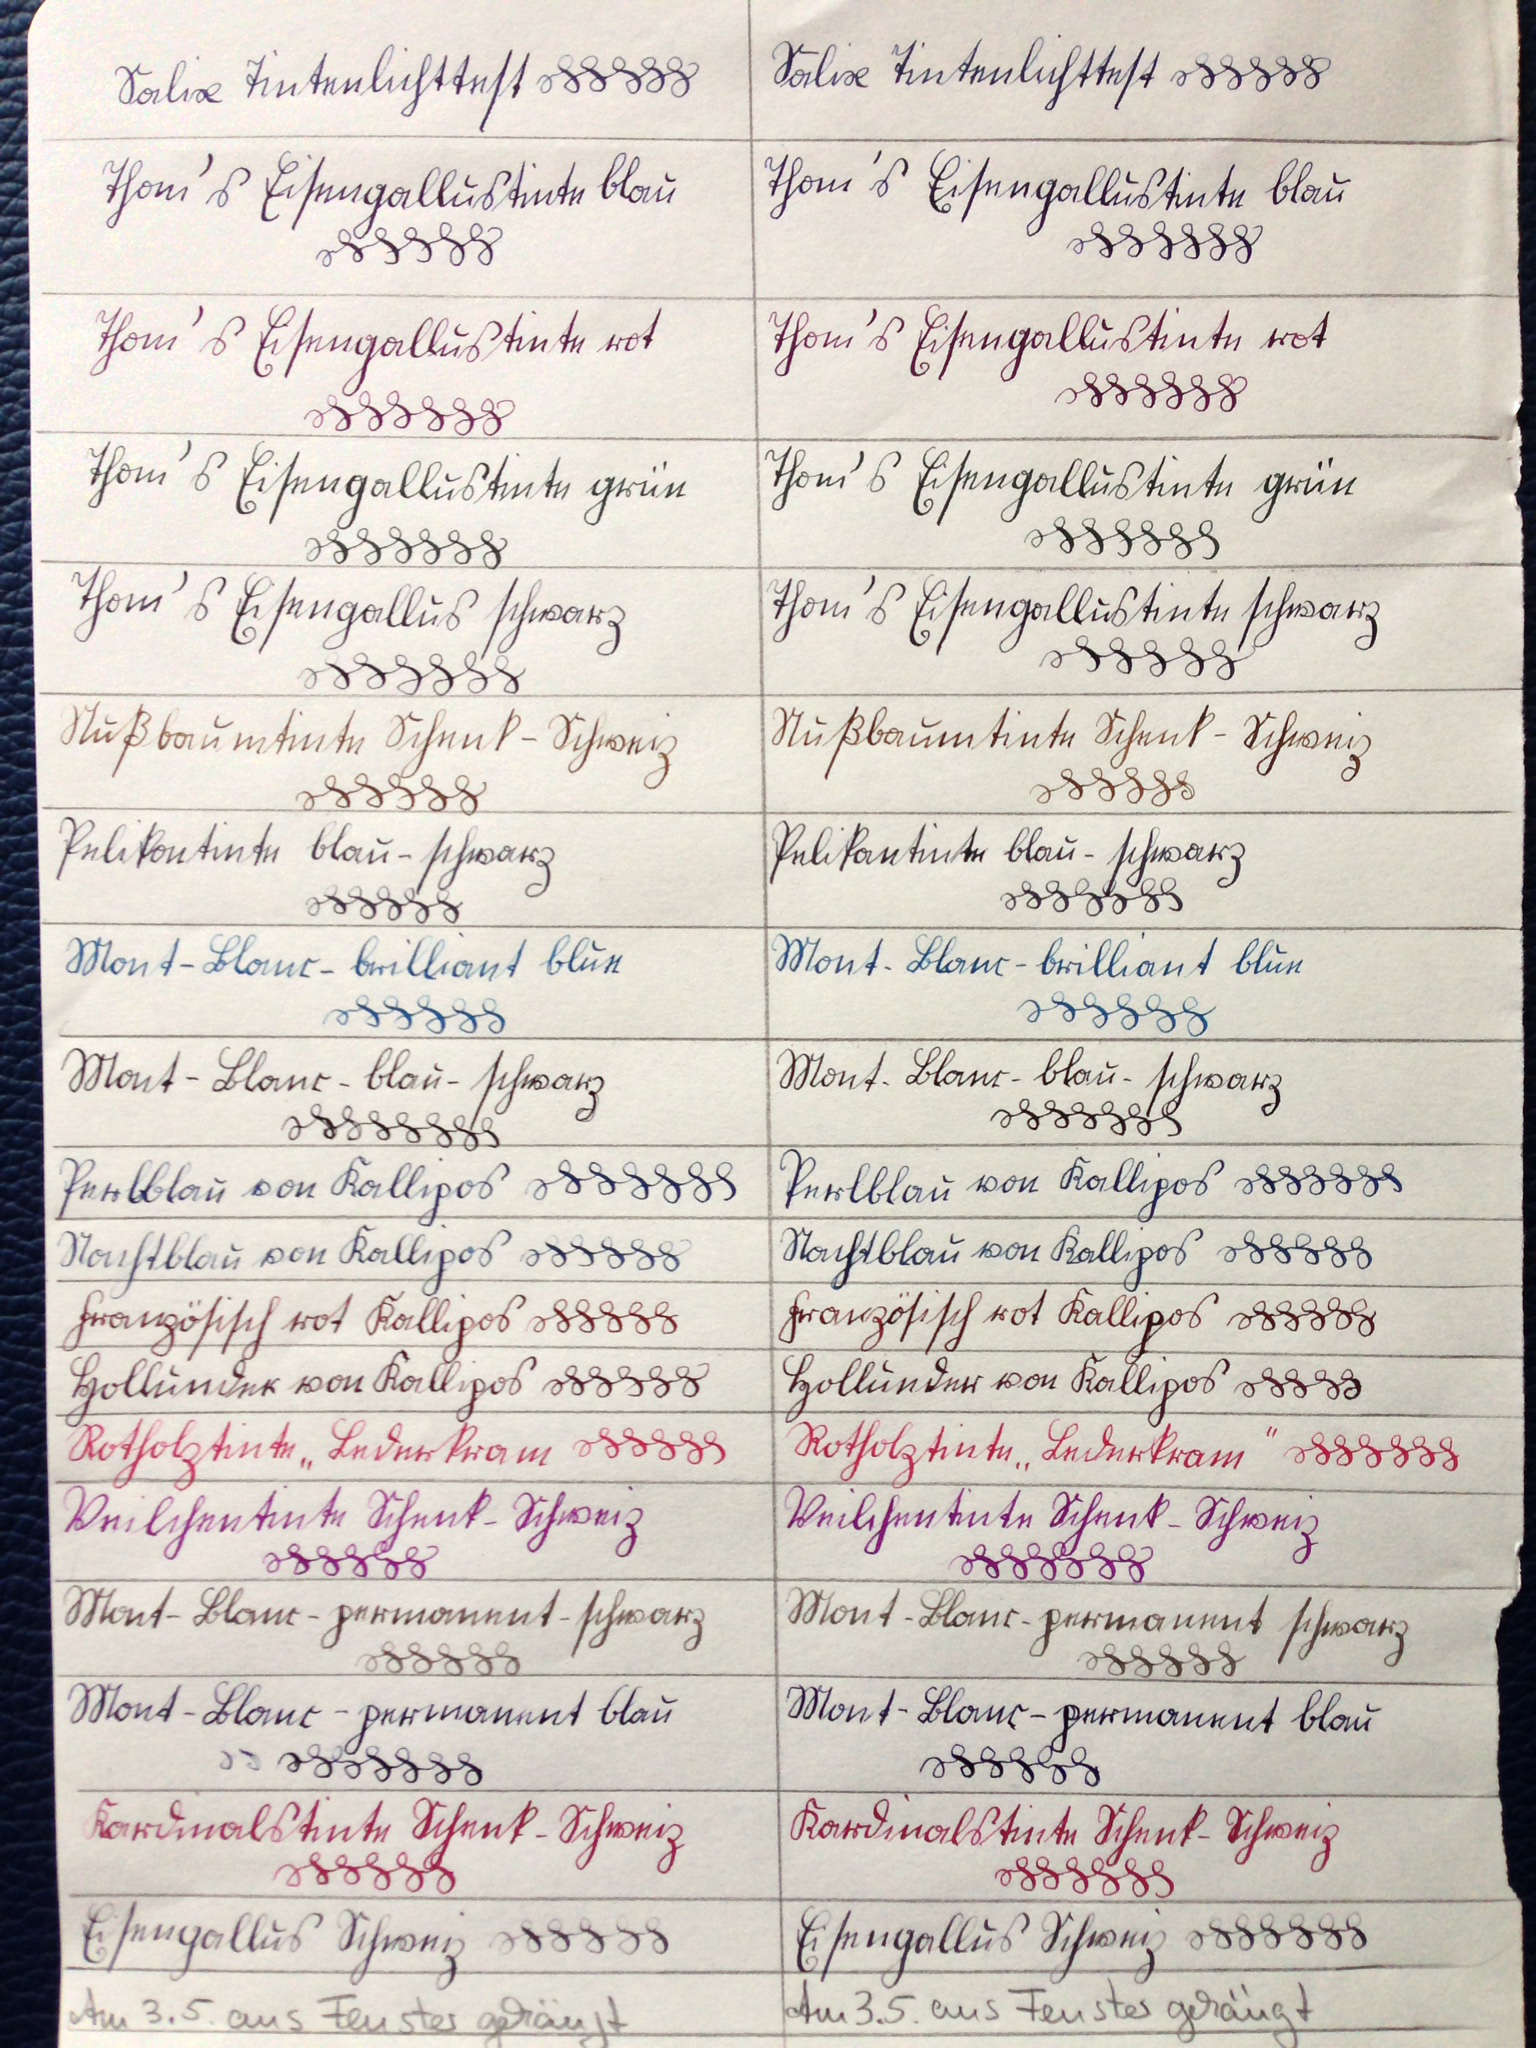 Salix Tintenlichttest
Salix Tintenlichttest
Thom's Eisengallustinte blau
Thom's Eisengallustinte blau
Thom's Eisengallustinte rot
Thom's Eisengallustinte rot
Thom's Eisengallustinte grün
Thom's Eisengallustinte grün
Thom's Eisengallus schwarz
Thom's Eisengallustinte schwarz
Nußbaumtinte Schenk-Schweiz
Nußbaumtinte Schenk-Schweiz
Pelikantinte blau-schwarz
Pelikantinte blau-schwarz
Mont-Blanc-brilliant blue
Mont-Blanc-brilliant blue
Mont-Blanc-blau-schwarz
Mont-Blanc-blau-schwarz
Perlblau von Kallipos
Perlblau von Kallipos
Nachtblau von Kallipos
Nachtblau von Kallipos
Französisch rot Kallipos
Französisch rot Kallipos
Hollunder von Kallipos
Hollunder von Kallipos
Rotholztinte „Lederkram
Rotholztinte „Lederkram"
Veilchentinte Schenk-Schweiz
Veilchentinte Schenk-Schweiz
Mont-Blanc-permanent-schwarz
Mont-Blanc-permanent schwarz
Mont-Blanc-permanent blau
Mont-Blanc-permanent blau
Kardinalstinte Schenk-Schweiz
Kardinalstinte Schenk-Schweiz
Eisengallus Schweiz
Eisengallus Schweiz
Am 3.5. ans Fenster gehängt
Am 3.5. ans Fenster gehängt